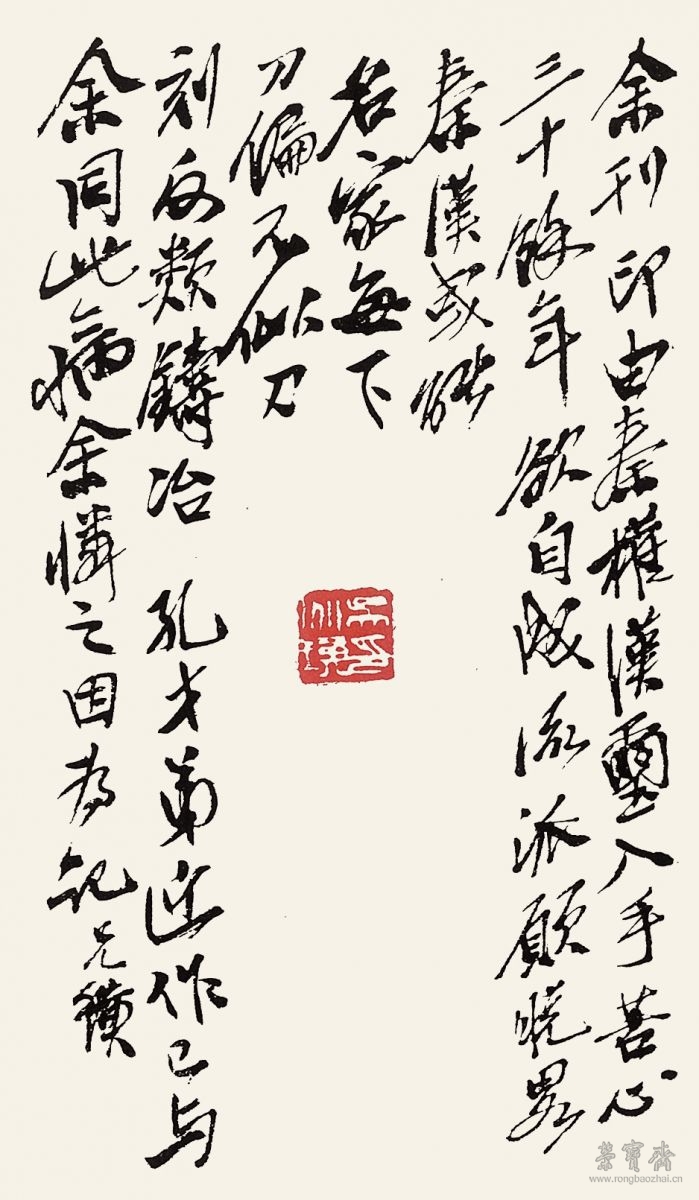 余刊印由秦權漢璽入手苦心
三十餘年欲自成流派願脱畧
秦漢或能
名家每下
刀偏不似刀
刻反類鑄冶 孔才弟近作已与
余同此病余憐之因为記兄璜
榮寶齋
www.rongbaozhai.cn